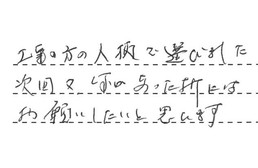 工事の方の人柄で選びました
次回又、何かあった折には
お願いしたいと思います